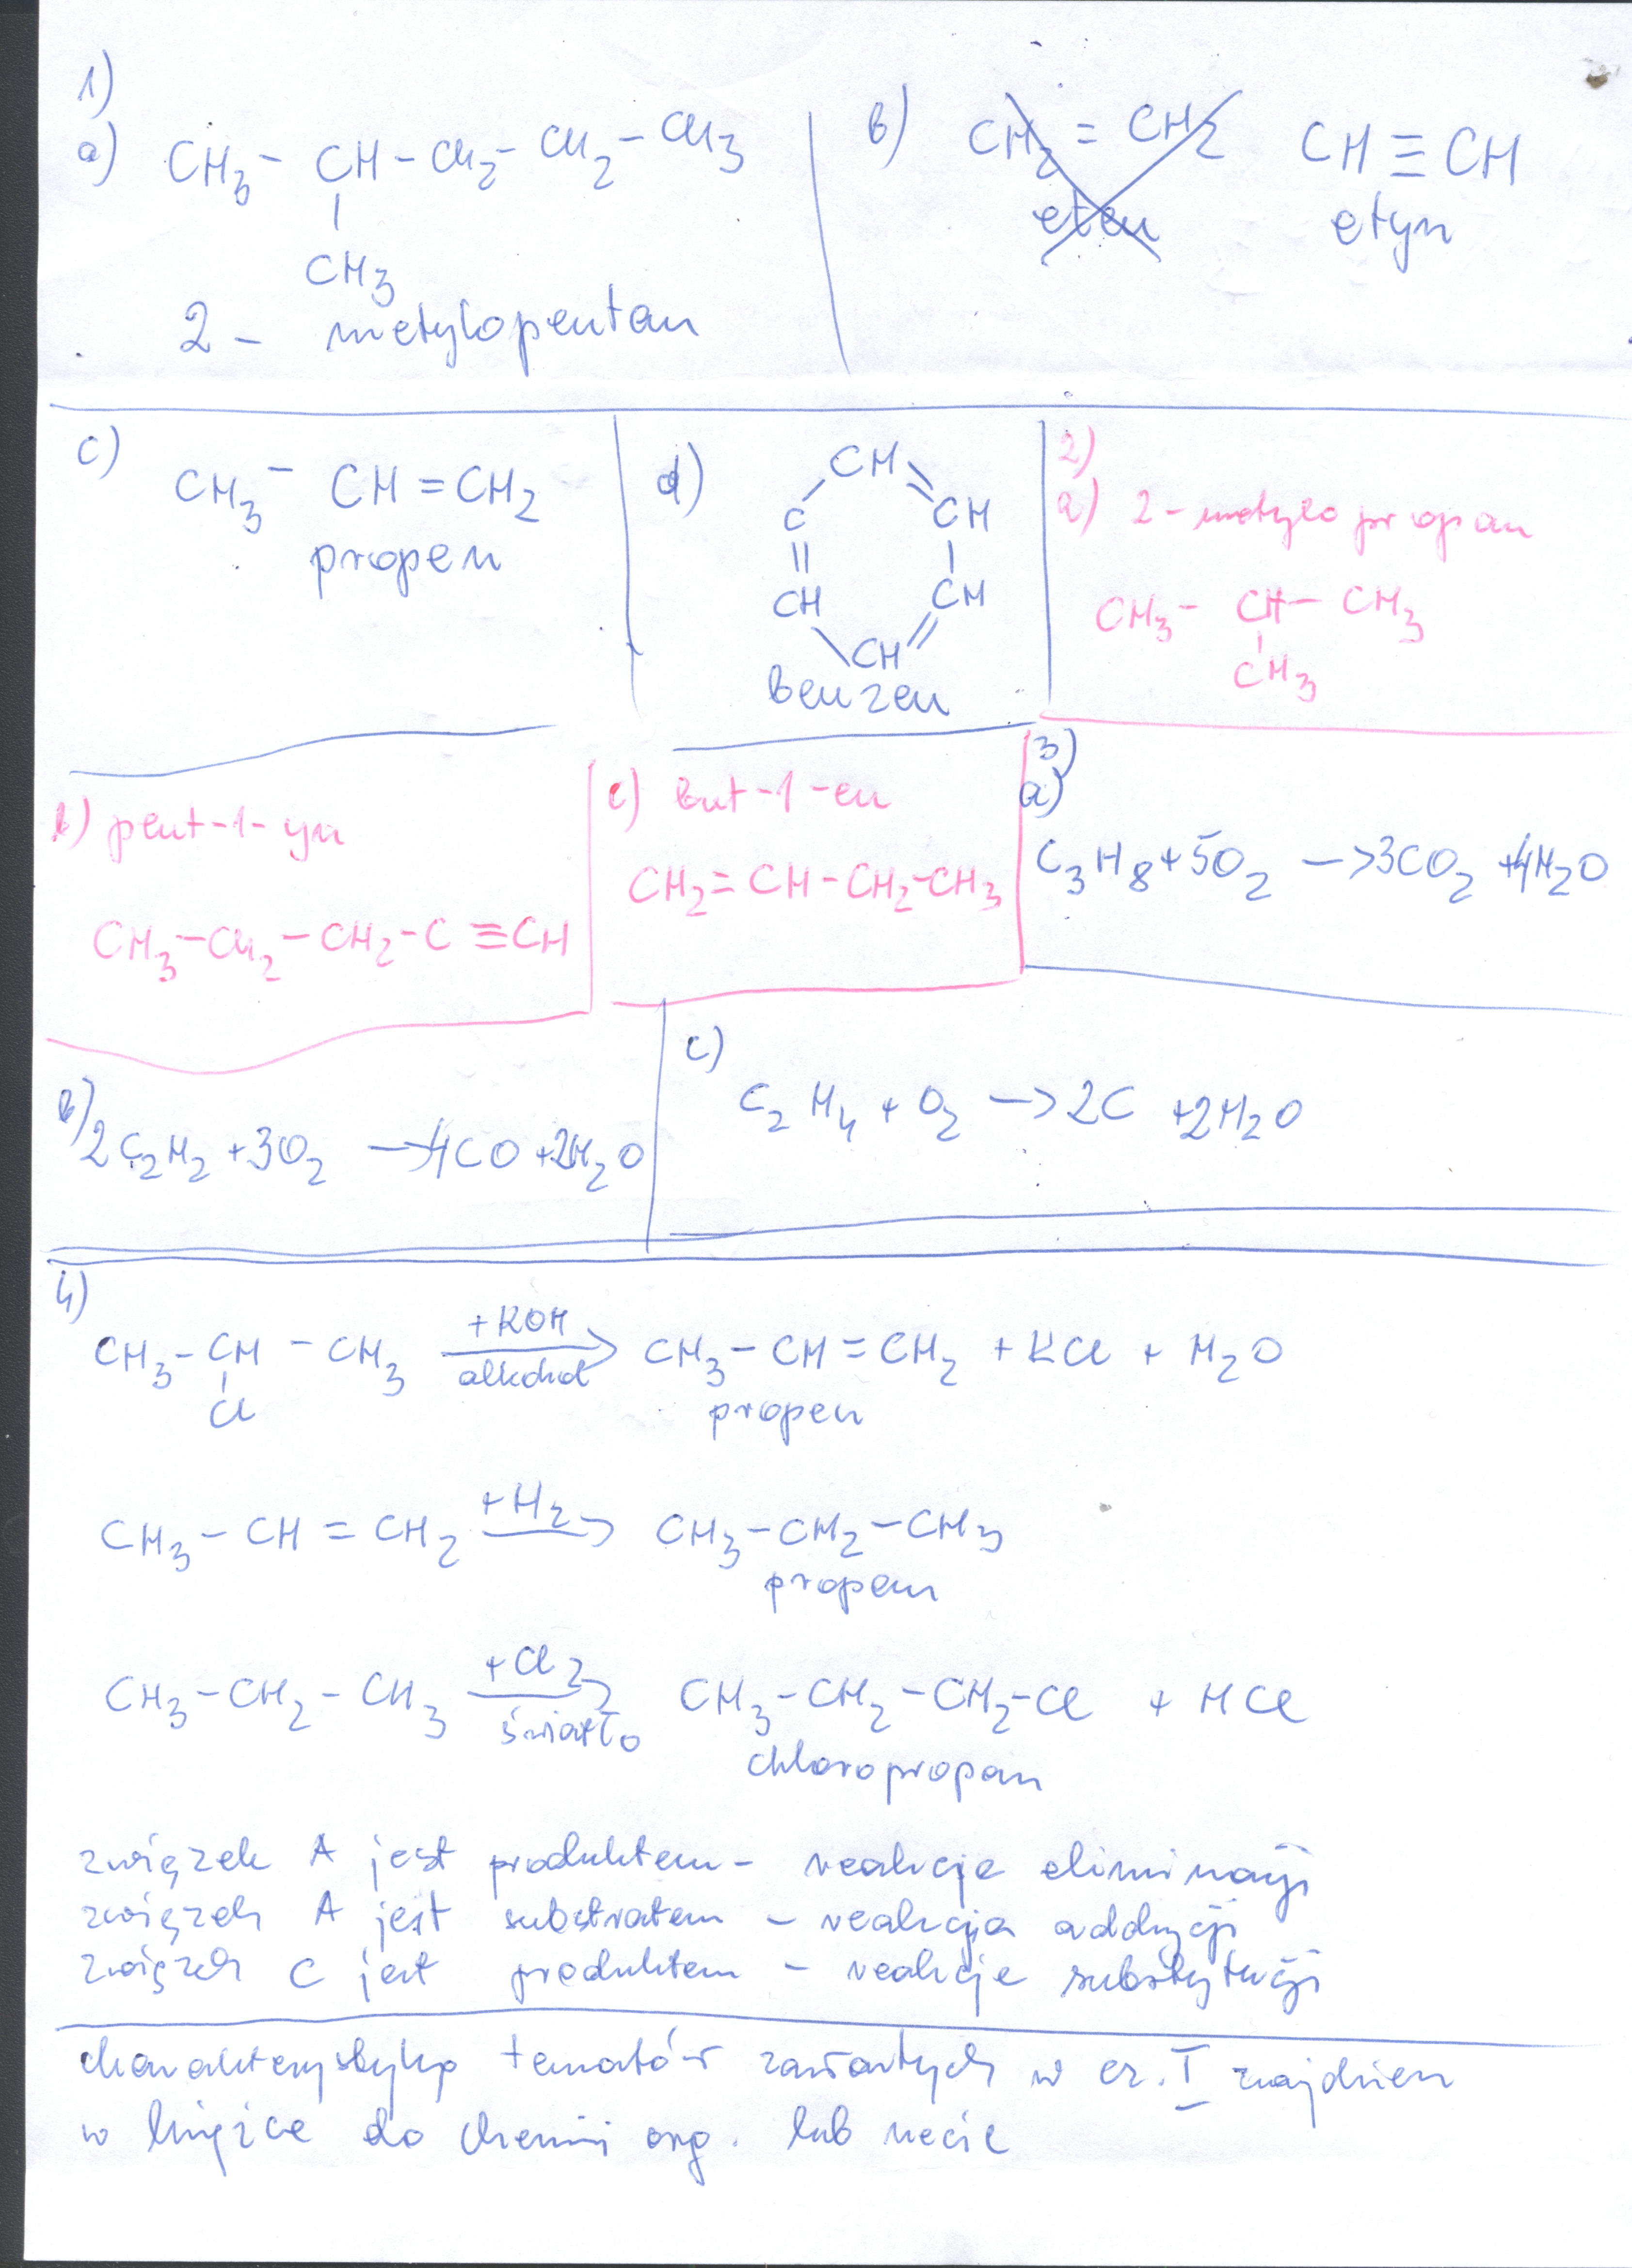 1)
a) CH₃ - CH - CH₂ - CH₂ - CH₃
|
CH₃
2 - metylopentan
b) CH₂ = CH₂ CH ≡ CH
eten etyn
c) CH₃ - CH = CH₂
propen
d) CH
C CH
CH CH
CH
benzen
2)
a) 2-metylopropan
CH₃ - CH - CH₃
CH₃
b) pent-1-yn
CH₃ - CH₂ - CH₂ - C ≡ CH
c) but-1-en
CH₂ = CH - CH₂ - CH₃
3)
a)
C₃H₈ + 5O₂ -> 3CO₂ + 4H₂O
b) 2C₂H₂ + 3O₂ -> 4CO + 2H₂O
c)
C₂H₄ + O₂ -> 2C + 2H₂O
4)
+KOH
CH₃ - CH - CH₃ -> CH₃ - CH = CH₂ + KCl + H₂O
Cl alkohol propen
+H₂
CH₃ - CH = CH₂ -> CH₃ - CH₂ - CH₃
propan
+Cl₂
CH₃ - CH₂ - CH₃ -> CH₃ - CH₂ - CH₂ - Cl + HCl
światło chloropropan
związek A jest produktem - reakcja eliminacji
związek A jest substratem - reakcja addycji
związek C jest produktem - reakcja substytucji
charakterystykę tematów zawartych w cz. I znajdziesz
w książce do chemii org. lub necie